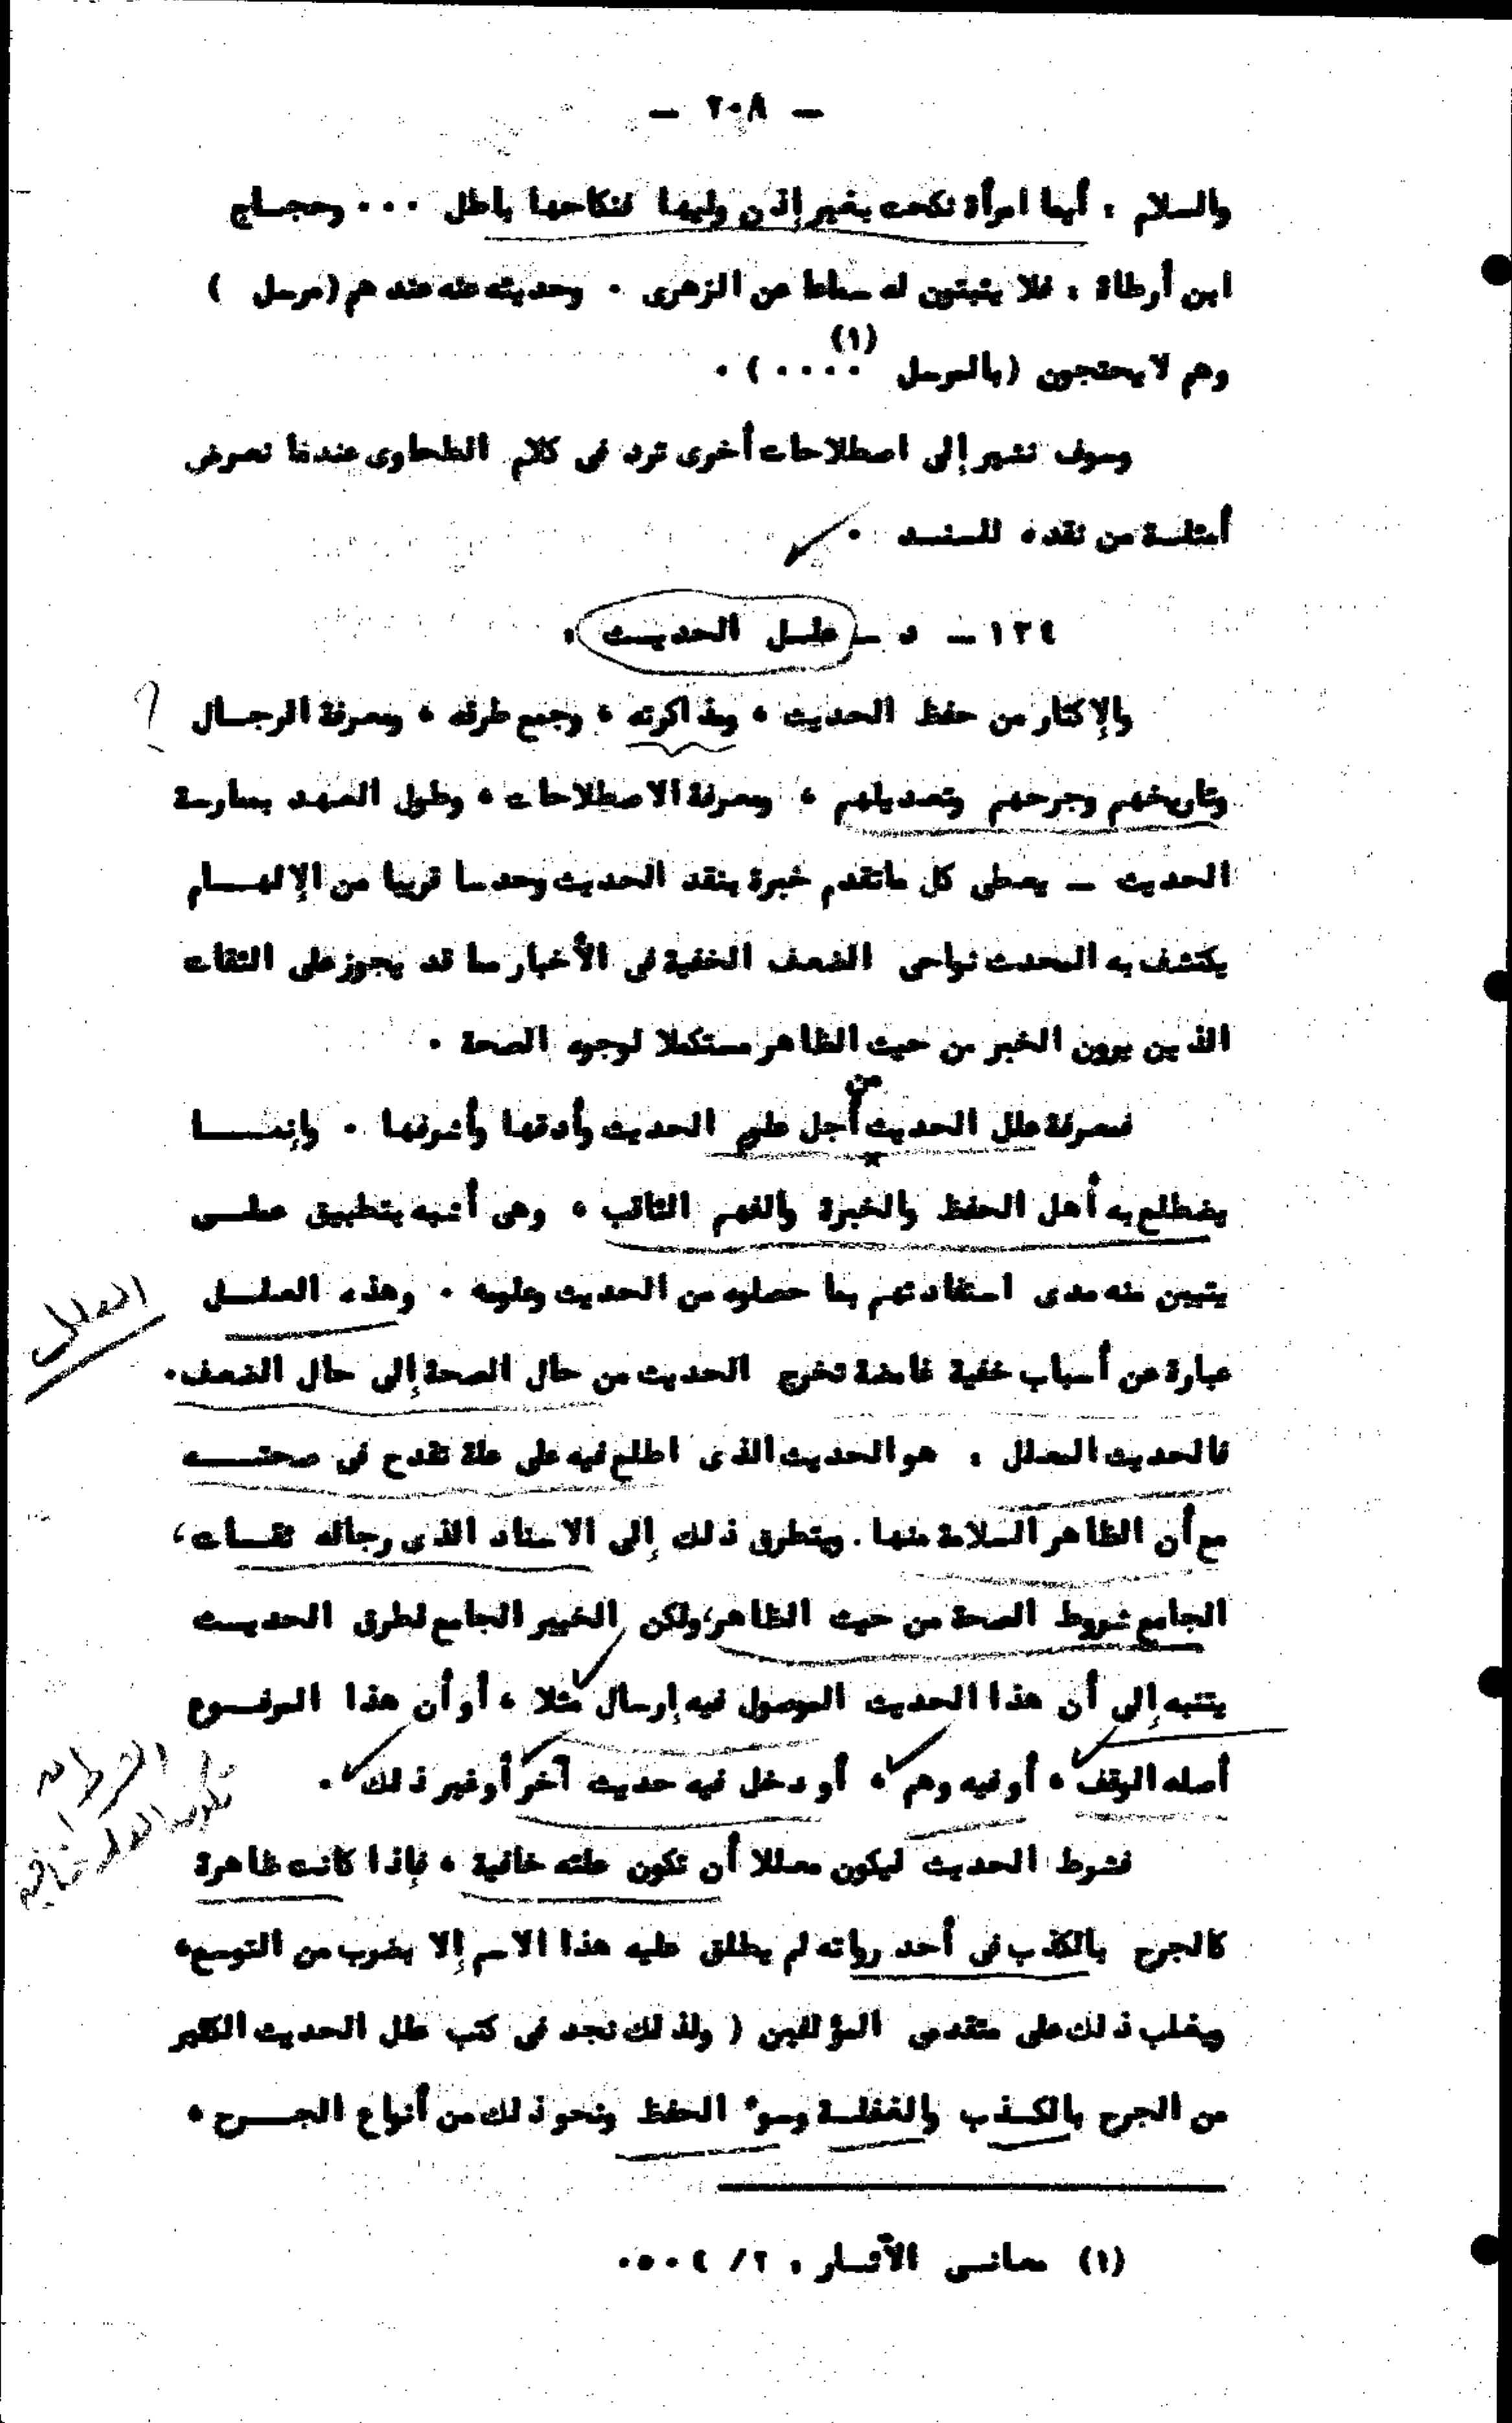 — ٢٠٨ —
والسلام : أيما امرأة نكحت بغير إذن وليها فنكاحها باطل ... وحجاج
ابن أرطاة ، فلا يثبتون له سماعا عن الزهرى . وحديثه عنه عندهم (مرسل )
وهم لا يحتجون (بالمرسل ....) (١) .
وسوف نشير إلى اصطلاحات أخرى ترد فى كلام الطحاوى عندما نعرض
أمثلة من نقده للسند .
١٢٤ — د — علل الحديث :
والإكثار من حفظ الحديث ، ومذاكرته ، وجمع طرقه ، ومعرفة الرجال ؟
وتاريخهم وجرحهم وتعديلهم ، ومعرفة الاصطلاحات ، وطول العهد بممارسة
الحديث — يعطى كل ماتقدم خبرة بنقد الحديث وحدسا قريبا من الإلهام
يكتشف به المحدث نواحى الضعف الخفية فى الأخبار مما قد يجوز على الثقات
الذين يرون الخبر من حيث الظاهر مستكملا لوجوه الصحة .
فمعرفة علل الحديث من أجل علوم الحديث وأدقها وأشرفها . وإنما
يضطلع به أهل الحفظ والخبرة والفهم الثاقب ، وهى أشبه بتطبيق عملى
يتبين منه مدى استفادتهم بما حصلوه من الحديث وعلومه . وهذه العلل
المعلل
عبارة عن أسباب خفية غامضة تخرج الحديث من حال الصحة إلى حال الضعف.
فالحديث المعلل : هو الحديث الذى اطلع فيه على علة تقدح فى صحته
مع أن الظاهر السلامة منها . ويتطرق ذلك إلى الاسناد الذى رجاله ثقات،
الجامع شروط الصحة من حيث الظاهر، ولكن الخبير الجامع لطرق الحديث
يتنبه إلى أن هذا الحديث الموصول فيه إرسال مثلا ، أو أن هذا المرفوع
أصله الوقف ، أو فيه وهم ، أو دخل فيه حديث آخر أو غير ذلك .
الشرط أن
تكون العلة خافية
فشرط الحديث ليكون معللا أن تكون علته خافية ، فإذا كانت ظاهرة
كالجرح بالكذب فى أحد رواته لم يطلق عليه هذا الاسم إلا بضرب من التوسع،
ويغلب ذلك على متقدمى المؤلفين ( ولذلك نجد فى كتب علل الحديث الكثير
من الجرح بالكذب والغفلة وسوء الحفظ ونحو ذلك من أنواع الجرح ،
(١) معانى الآثار ، ٢/ ٤-٥.